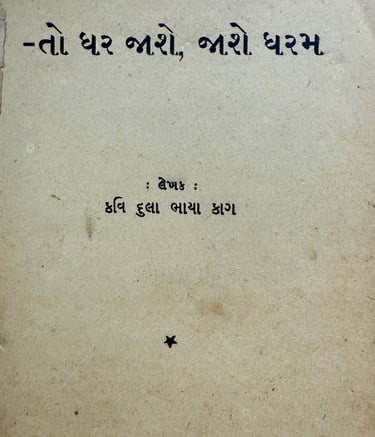 -તો ધર જાશે, જાશે ધરમ
: લેખક :
કવિ દુલા ભાયા કાગ